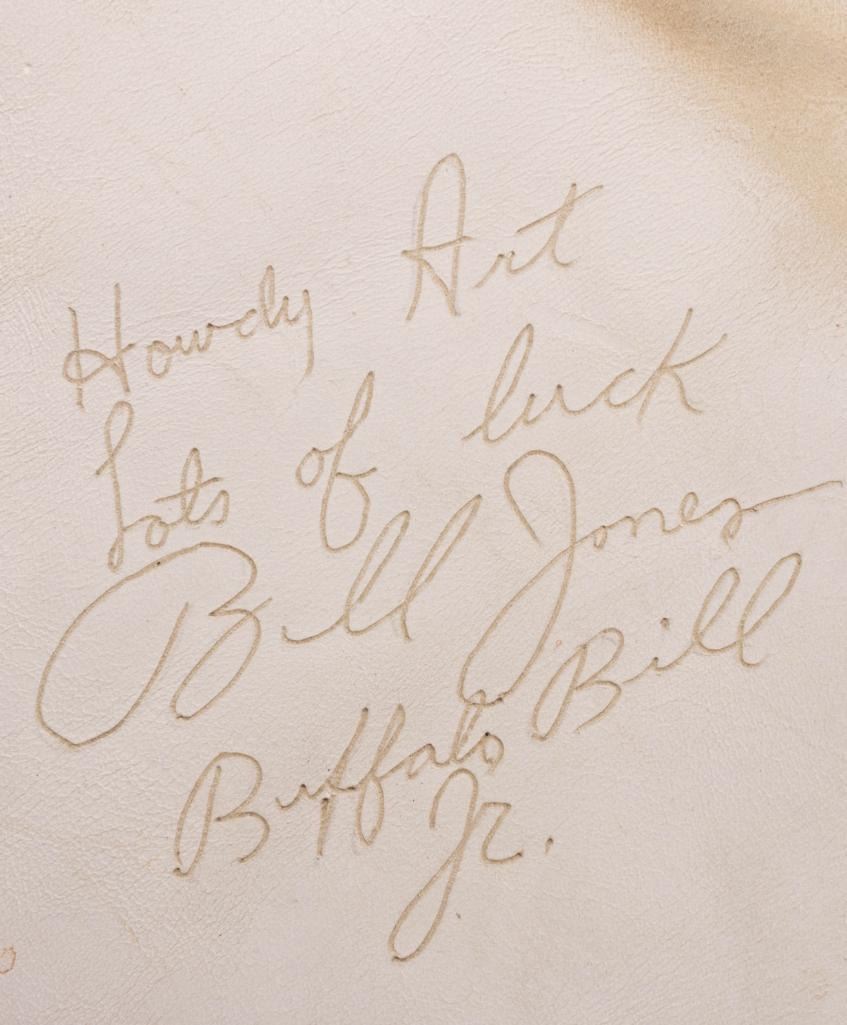 Howdy Art
Lots of luck
Bill Jones
Buffalo Bill
Jr.